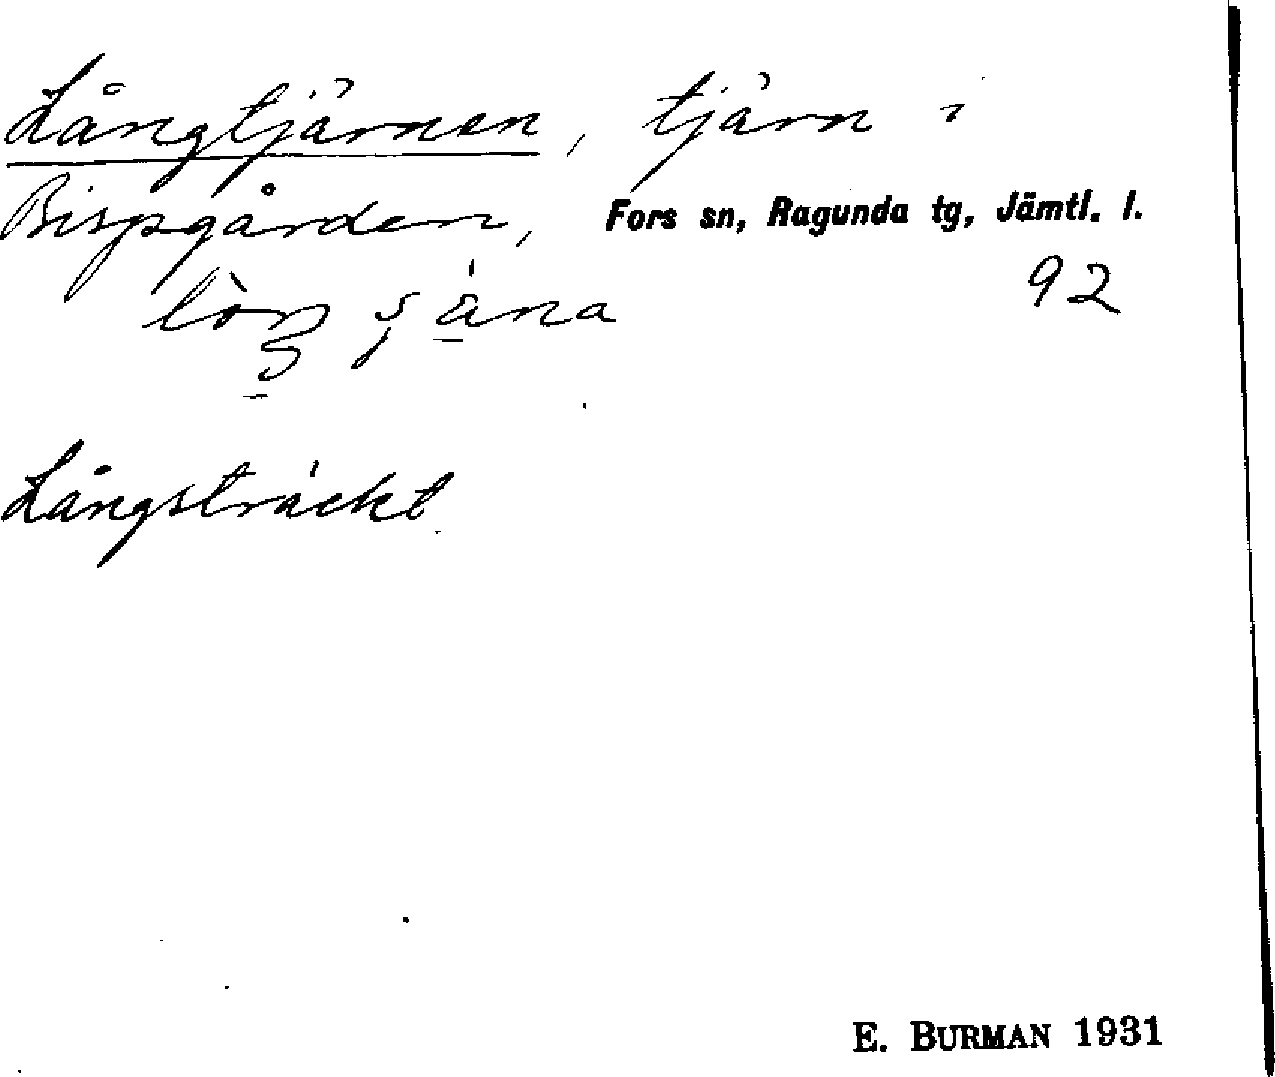 Långtjärnen, tjärn i
Bispgården, Fors sn, Ragunda tg, Jämtl. l.
92
Långsträckt.
E. BURMAN 1931